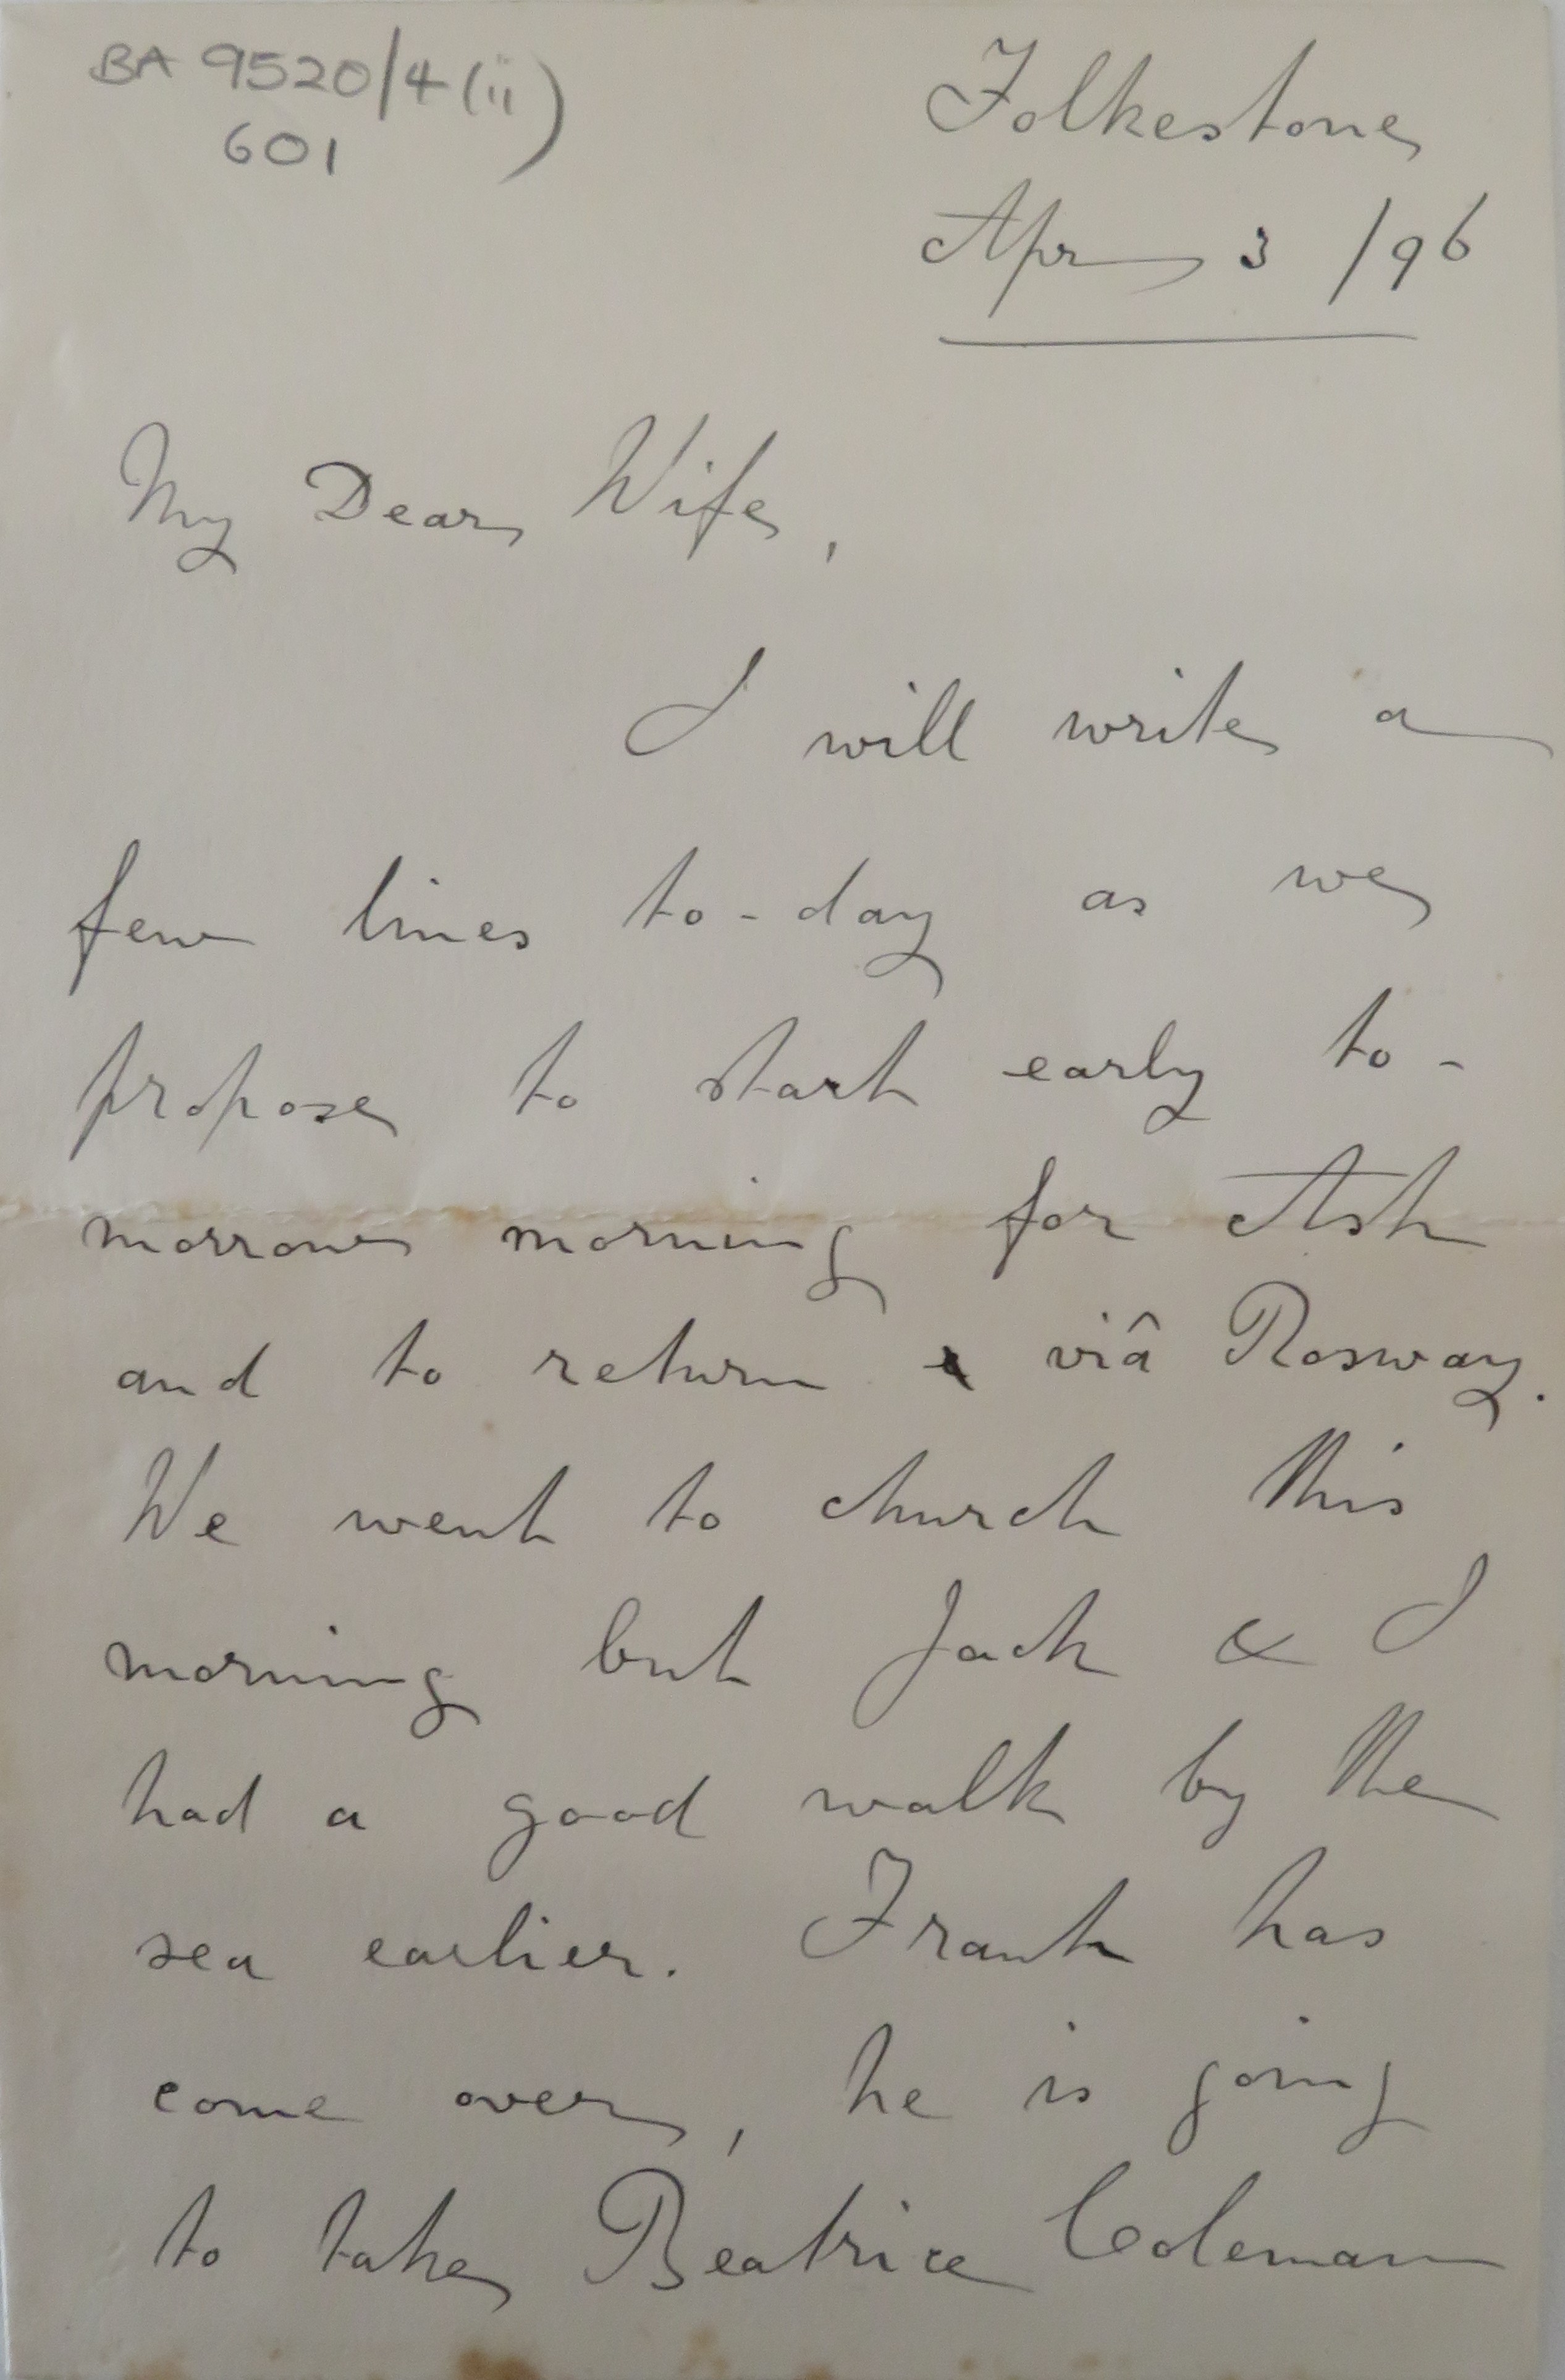 BA 9520/4(ii)
601
Folkestone
Apr 3 /96
My Dear Wife,
I will write a
few lines to-day as we
propose to start early to-
morrow morning for Ash
and to return viâ Rosway.
We went to church this
morning but Jack & I
had a good walk by the
sea earlier. Frank has
come over, he is going
to take Beatrice Coleman